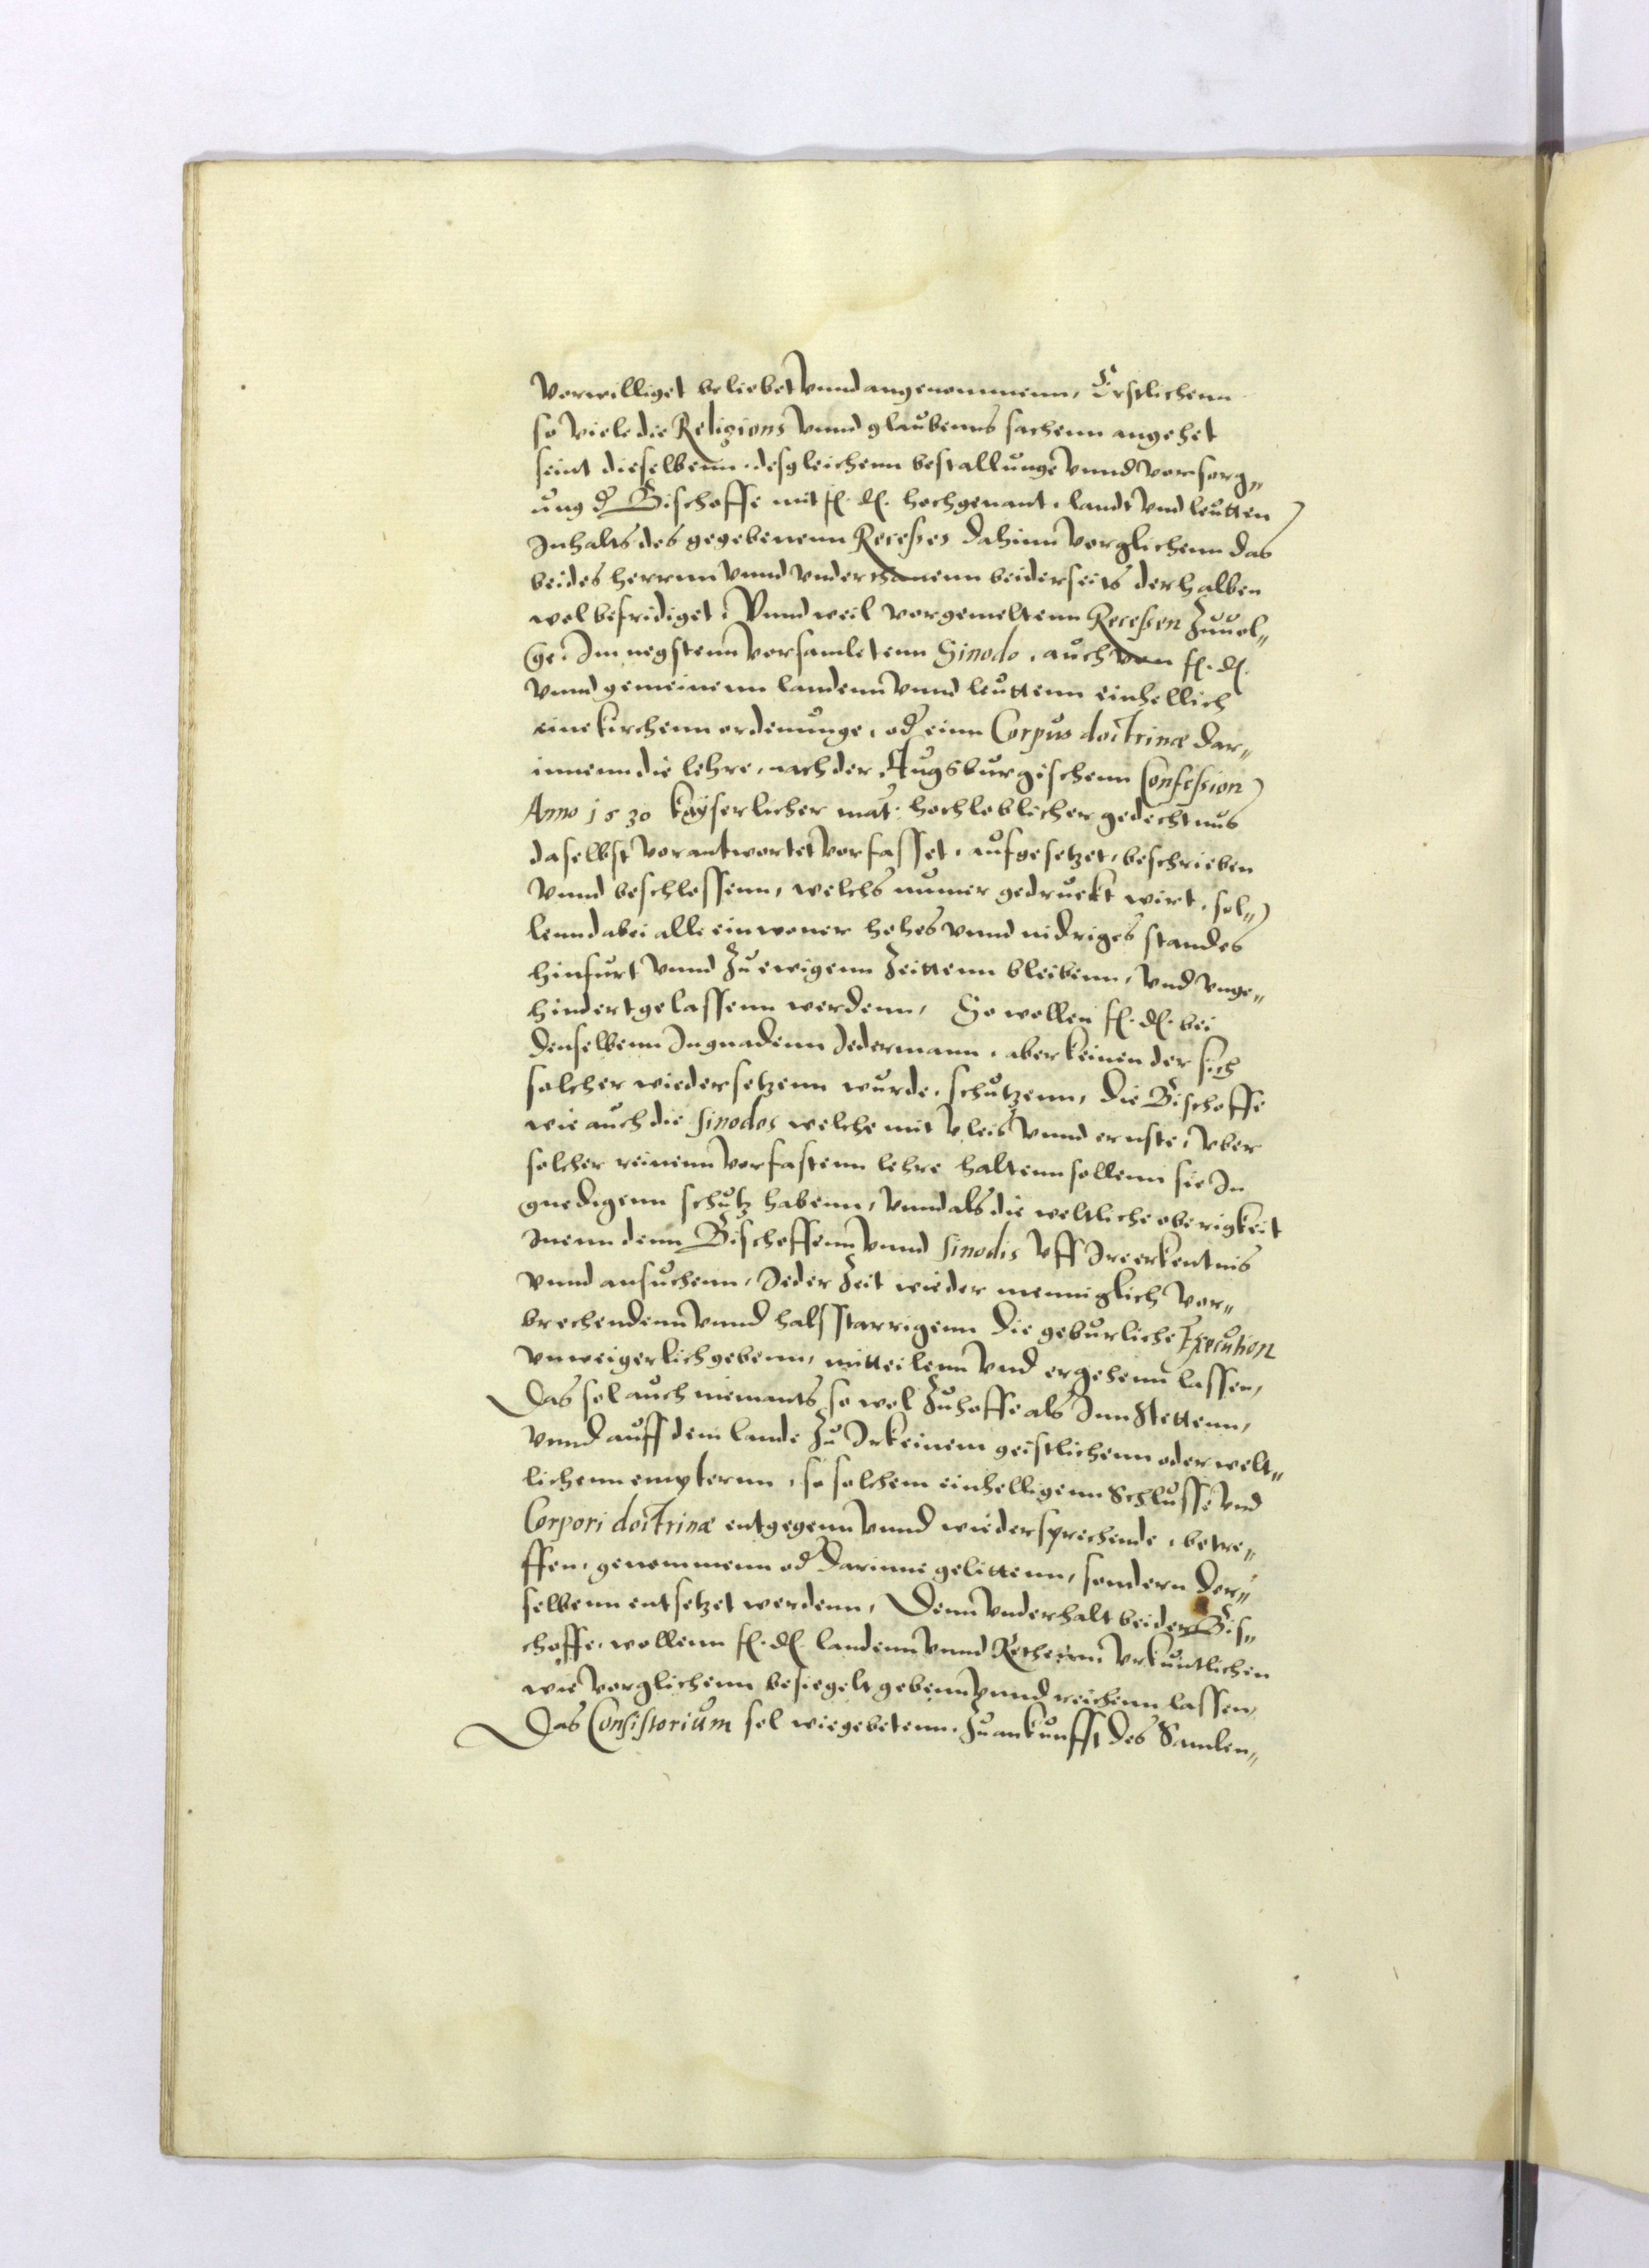 vorwilliget beliebet vnnd angenommenn, Erstlichenn
so viele die Religions vnnd glaubenns sachenn angehet
seint dieselbenn. desgleichenn bestallunge vnnd vorsorg„
ung d Bischoffe mit f. d. hochgenant. landt vnd leutten
Inhalts des gegebenenn Recesses dahinn vorglichenn das
beides herrnn vnnd vnderthanenn beiderseits derhalben
wol befridiget. Vnnd weil vorgemeltenn Recessen zuuol„
ge. Im negstenn vorsamletenn Sinodo. auch von f. d.
vnnd gemeinenn landenn vnnd leuttenn einhellich
eine kirchenn ordenunge. od einn Corpus doctrinæ dar„
innenn die lehre, nach der Augsburgischenn Confession
Anno 1530 kayserlicher mat: hochloblicher gedechtnus
daselbst vorantwortet vorfasset. aufgesetzet, beschrieben
vnnd beschlossenn, welchs numer gedruckt wirt. sol„
lenn dabei alle einwoner hohes vnnd nidriges standes
hinfurt vnnd zu ewigenn zeittenn bleibenn, vnd vnge„
hindert gelassenn werdenn, So wollen f. d. bei
denselbenn In gnadenn Jedermann. aber keinen der sich
solcher wiedersetzenn wurde. schutzenn, Die Bischoffe
wie auch die sinodos welche mit vleis vnnd ernste, vber
solcher reinenn vorfastenn lehre haltenn sollenn sie In
gnedigenn schutz habenn, vnnd als die weltliche oberigkeit
Inenn denn Bischoffenn vnnd sinodis vff Ire erkentnis
vnnd ansuchenn, Jeder zeit wieder menniglich vor„
brechendenn vnnd halsstarrigenn die geburliche Execution
vnweigerlich gebenn, mitteilenn vnd ergehenn lassen,
Das sol auch niemants so wol zu hoffe als Inn Stettenn,
vnnd auff dem lande zu Irkeinem geistlichenn oder welt„
lichenn empternn, so solchem einhelligenn Schlusse vnd
Corpori doctrinæ entgegenn vnnd wiedersprechende, betre„
ffen, genommenn od darinne gelittenn, sondern der„
selbenn entsetzet werdenn, Denn vnderhalt beider Bis„
choffe, wollenn f. d. landenn vnnd Rethenn vrkuntlichen
wie vorglichenn besiegelt gebenn vnnd reichenn lassen,
Das Consistorium sol wie gebetenn. zu ankunfft des Samlen„